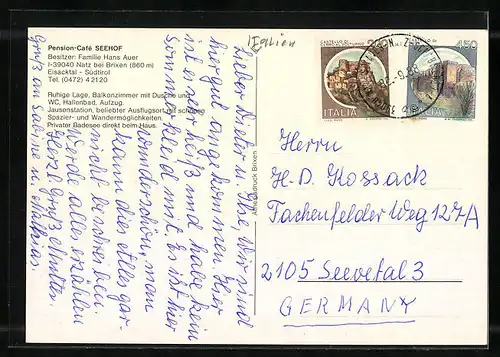 Pension-Café SEEHOF
Besitzer: Familie Hans Auer
I-39040 Natz bei Brixen (860 m)
Eisacktal - Südtirol
Tel. (0472) 42120
Ruhige Lage, Balkonzimmer mit Dusche und
WC, Hallenbad, Aufzug.
Jausenstation, beliebter Ausflugsort mit schönen
Spazier- und Wandermöglichkeiten.
Privater Badesee direkt beim Haus.
Italien
Lieber Dieter u. Ilse, Wir sind
hier gut angekommen, Hier
ist es sehr heiß und habe kein
Sommerkleid mit. Es ist hier
wunderschön, man
kann dies alles gar
nicht beschreiben.
Werde alles erzählen
Herzl. Grüße Mutter.
Gruß an Sabine u. Mathias.
ITALIA
450
Herrn
H-D. Kossack
Fachenfelder Weg 127A
2105 Seevetal 3
GERMANY